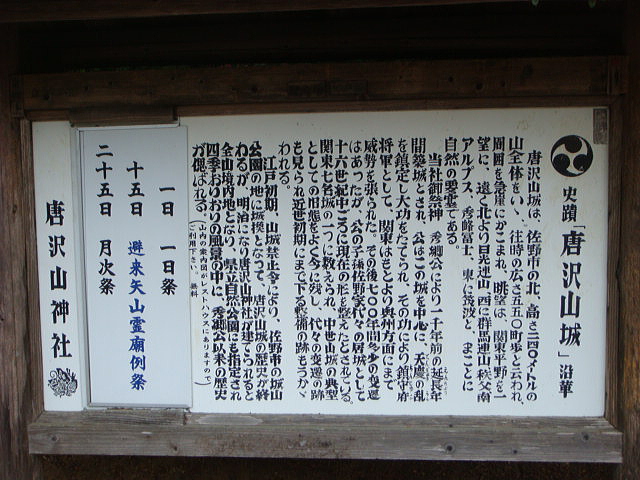 史蹟「唐沢山城」沿革
唐沢山城は、佐野市の北、高さ二四〇メートルの
山全体をいゝ、往時の広さ五五〇町歩と云われ、
周囲を急崖にかこまれ、眺望は、関東平野を一
望に、遠く北より日光連山 西に群馬連山秩父南
アルプス、秀峰富士、東に筑波と、まことに
自然の要塞である。
当社御祭神 秀郷公により一千年前の延長年
間築城とされ、公はこの城を中心に、天慶の乱
を鎮定し大功をたてられ、その功により、鎮守府
将軍として、関東はもとより奥州方面にまで
威勢を張られた。その後七〇〇年間多少の変遷
はあったが、公の子孫佐野家代々の居城として
十六世紀中ごろに現在の形を整えたとされている。
関東七名城の一つに数えられ、中世山城の典型
としての旧態をよく今に残し、代々の変遷の跡
も見られ近世初期にまで下る整備の跡もうかゞ
われる。
江戸初期、山城禁止令により、佐野市の城山
公園の地に城換となって、唐沢山城の歴史が終
わるが、明治になり唐沢山神社が建てられると
全山境内地となり、県立自然公園にも指定され
四季おりおりの風景の中に、秀郷公以来の歴史
が偲ばれる。
(山内の案内図がレストハウスにありますので)
ご利用下さい。 無料
一日 一日祭
十五日 避来矢山霊廟例祭
二十五日 月次祭
唐沢山神社